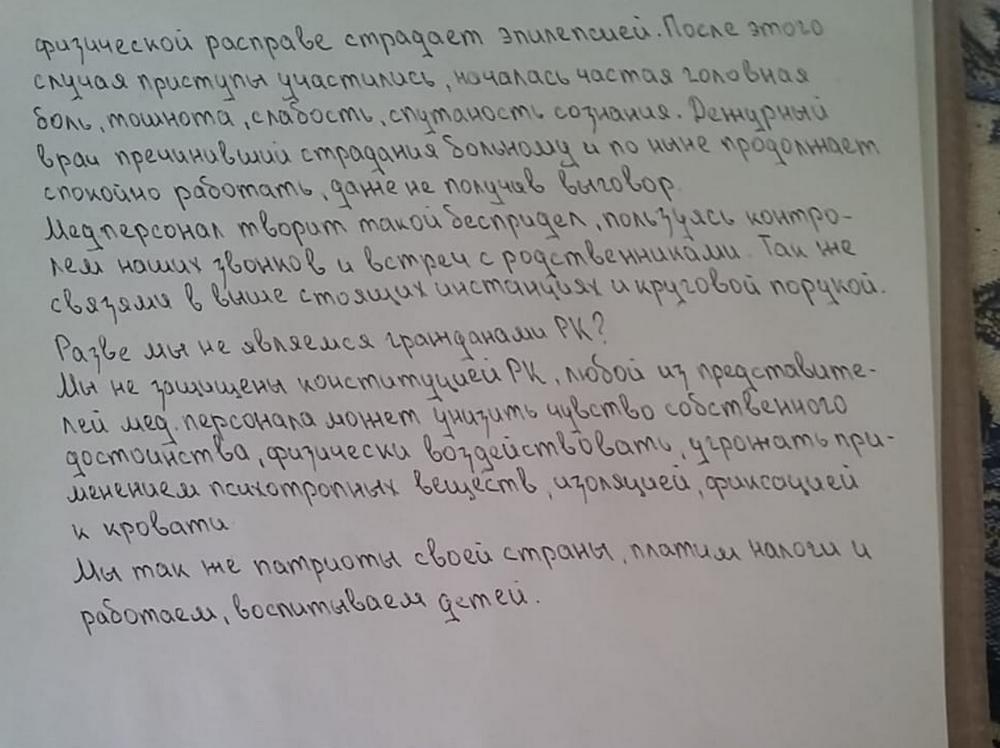 физической расправе страдает эпилепсией. После этого
случая приступы участились, началась частая головная
боль, тошнота, слабость, спутаность сознания. Дежурный
врач пречинивший страдания больному и по ныне продолжает
спокойно работать, даже не получив выговор.
Медперсонал творит такой беспридел, пользуясь контро-
лем наших звонков и встреч с родственниками. Так же
связями в выше стоящих инстанциях и круговой порукой.
Разве мы не являемся гражданами РК?
Мы не защищены конституцией РК, любой из представите-
лей мед. персонала может унизить чувство собственного
достоинства, физически воздействовать, угрожать при-
менением психотропных веществ, изоляцией, фиксацией
к кровати
Мы так же патриоты своей страны, платим налоги и
работаем, воспитываем детей.